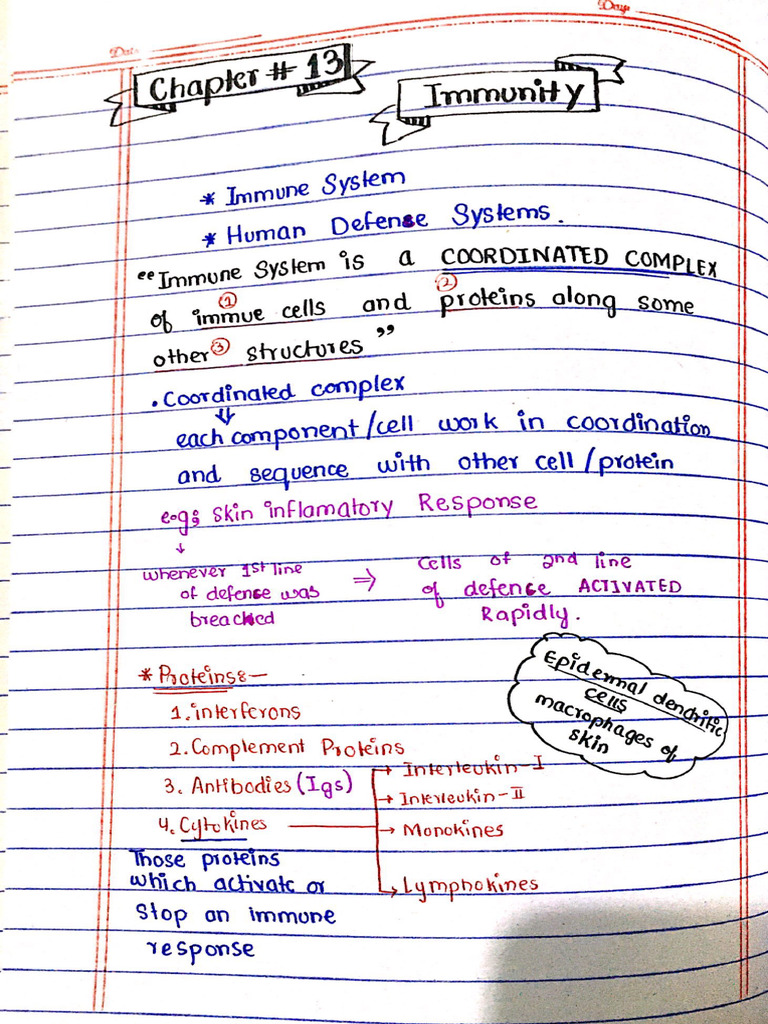 Date
Day
Chapter # 13
Immunity
* Immune System
* Human Defense Systems.
"Immune System is a COORDINATED COMPLEX
of ① immue cells and ② proteins along some
other ③ structures"
. Coordinated complex
⇓
each component/cell work in coordination
and sequence with other cell/protein
e.g; skin inflamatory Response
↓
whenever 1st line ⇒ Cells of 2nd line
of defense was of defence ACTIVATED
breached Rapidly.
* Proteins:-
1. interferons
2. Complement Proteins
3. Antibodies (Igs)
4. Cytokines
→ Interleukin-I
→ Interleukin-II
→ Monokines
→ Lymphokines
Those proteins
which activate or
stop an immune
response
Epidermal dendritic
cells
macrophages of
skin